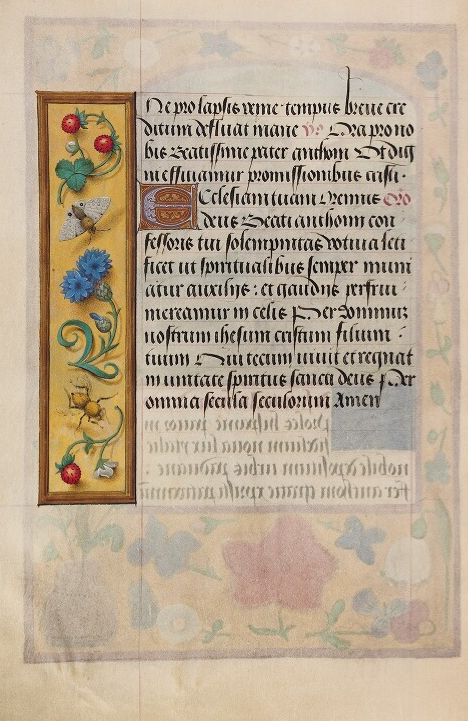 Ne pro lapsis vene tempus breve cre
ditum defluat inane Ora pro no
bis Beatissime pater anthoni Ut dig
ni efficiamur promissionibus cristi ·
Ecclesiam tuam Oremus Oro
deus Beati anthonii con
fessoris tui solempnitas votiva leti
ficet ut spiritualibus semper muni
atur auxiliis : et gaudiis perfrui
mereamur in celis Per dominum
nostrum ihesum cristum filium
tuum Qui tecum vivit et regnat
in unitate spiritus sancti deus Per
omnia secula seculorum Amen